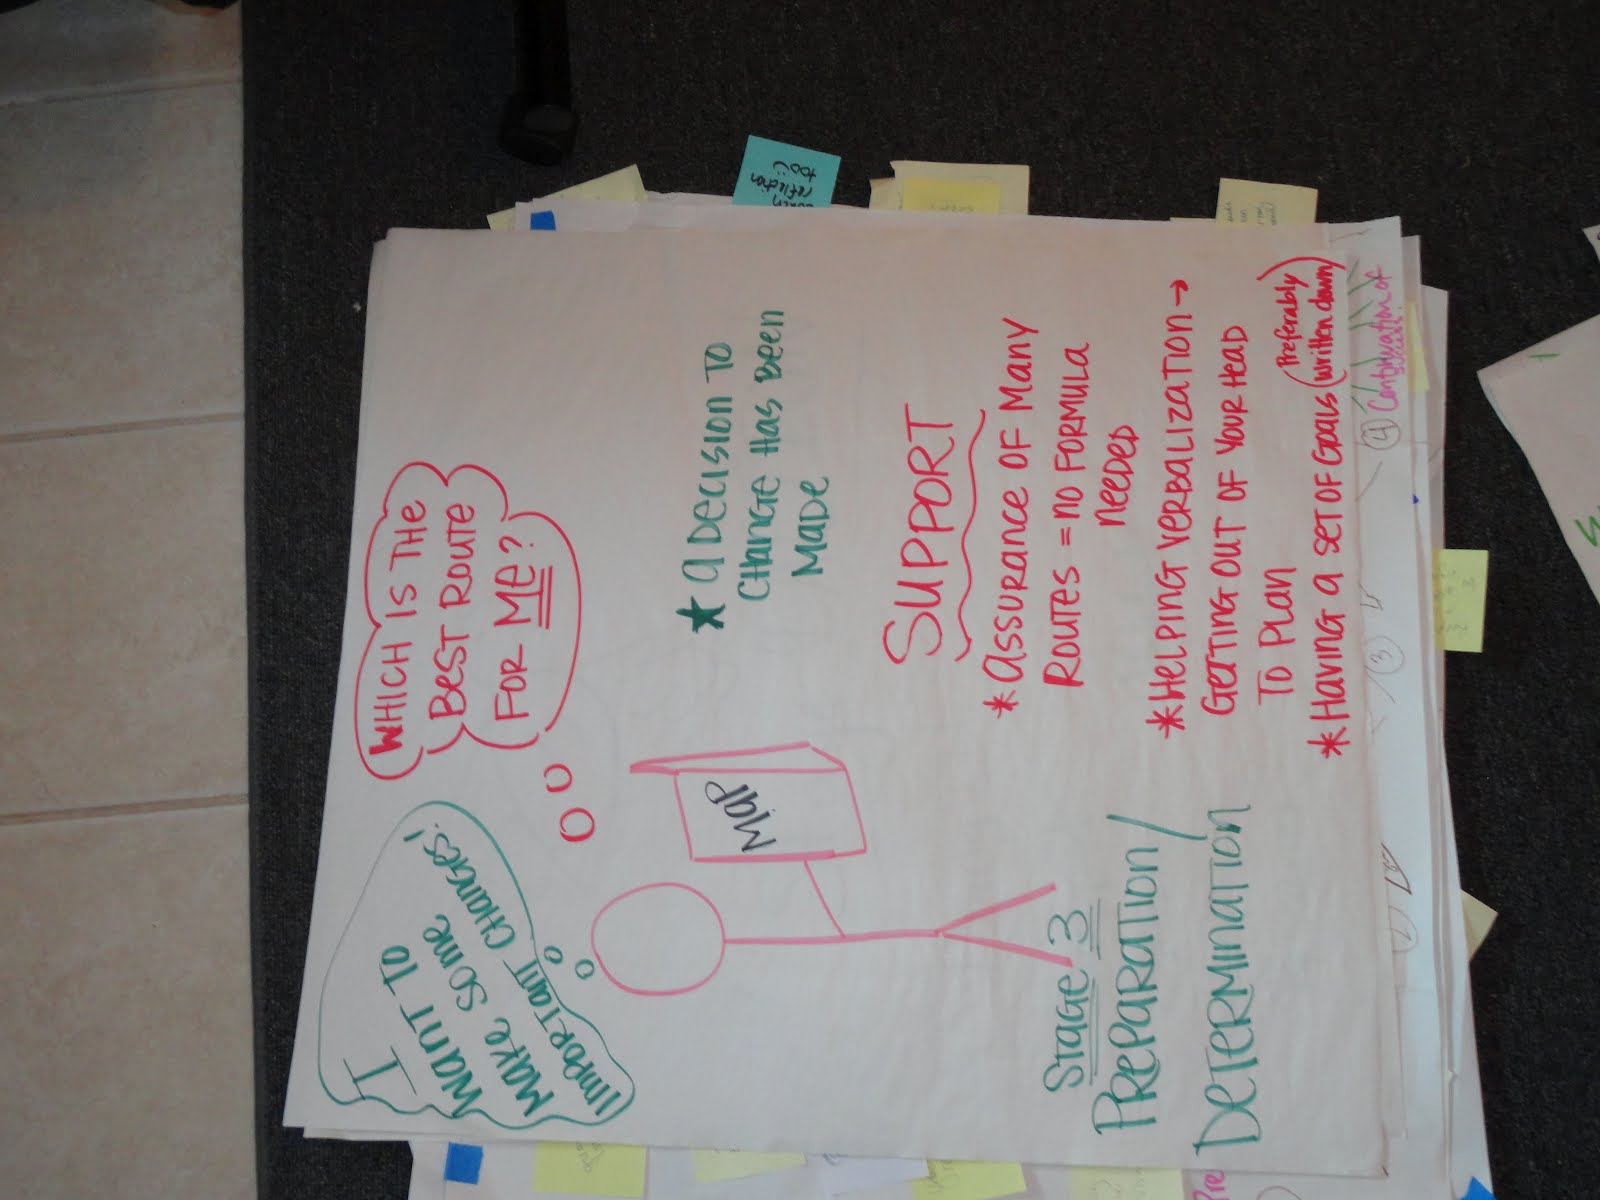 I
WANT TO
MAKE SOME
IMPORTANT CHANGES!
WHICH IS THE
BEST ROUTE
FOR ME?
MAP
* A DECISION TO
CHANGE HAS BEEN
MADE
STAGE 3
PREPARATION/
DETERMINATION
SUPPORT
* ASSURANCE OF MANY
ROUTES = NO FORMULA
NEEDED
* HELPING VERBALIZATION →
GETTING OUT OF YOUR HEAD
TO PLAN
* HAVING A SET OF GOALS (Preferably
written down)
4 Continuation of
3
reflection
too